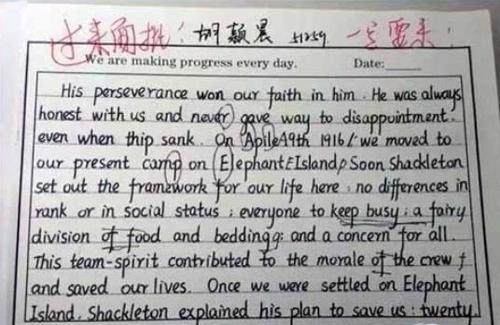 过来面批! 胡颖晨 51259 一定要来!
We are making progress every day. Date:
His perseverance won our faith in him. He was always
honest with us and never gave way to disappointment.
even when thip sank. On Apile 49th 1916/ we moved to
our present camp on Elephant Island, Soon Shackleton
set out the framework for our life here: no differences in
rank or in social status; everyone to keep busy; a fairy
division of food and bedding; and a concern for all.
This team-spirit contributed to the morale of the crew
and saved our lives. Once we were settled on Elephant
Island, Shackleton explained his plan to save us: twenty